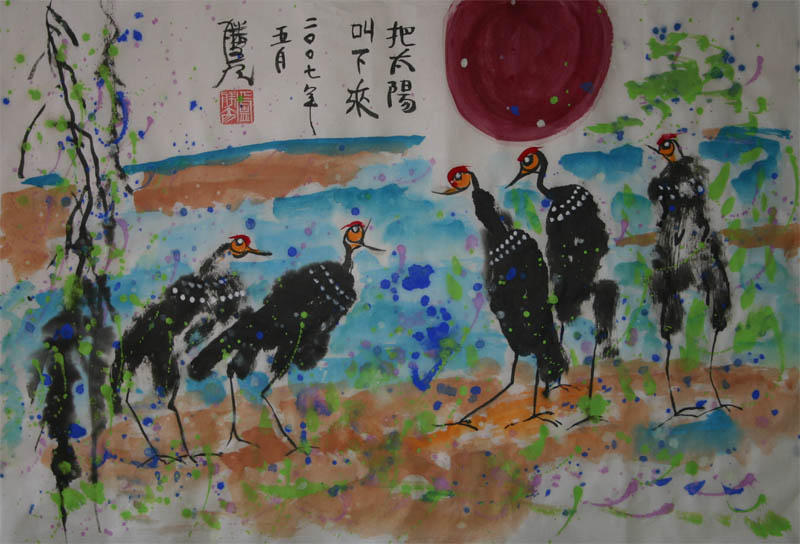 把太陽
叫下來
二〇〇七年
五月